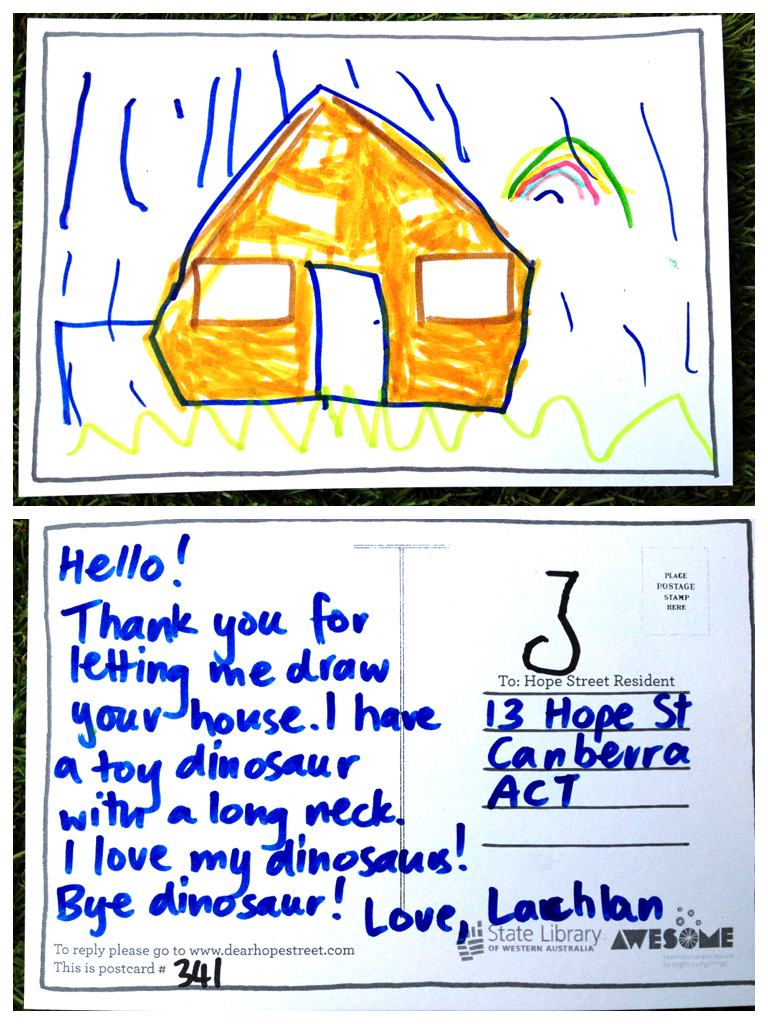 Hello!
Thank you for
letting me draw
your house. I have
a toy dinosaur
with a long neck.
I love my dinosaurs!
Bye dinosaur! Love, Lachlan
To reply please go to www.dearhopestreet.com
This is postcard # 341
PLACE
POSTAGE
STAMP
HERE
3
To: Hope Street Resident
13 Hope St
Canberra
ACT
State Library
OF WESTERN AUSTRALIA
AWESOME
international arts festival
for bright young things